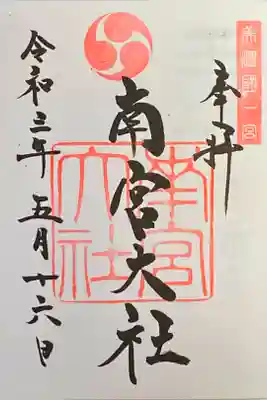 美濃國一宮
奉拝
南宮大社
南宮大社
令和三年五月十六日